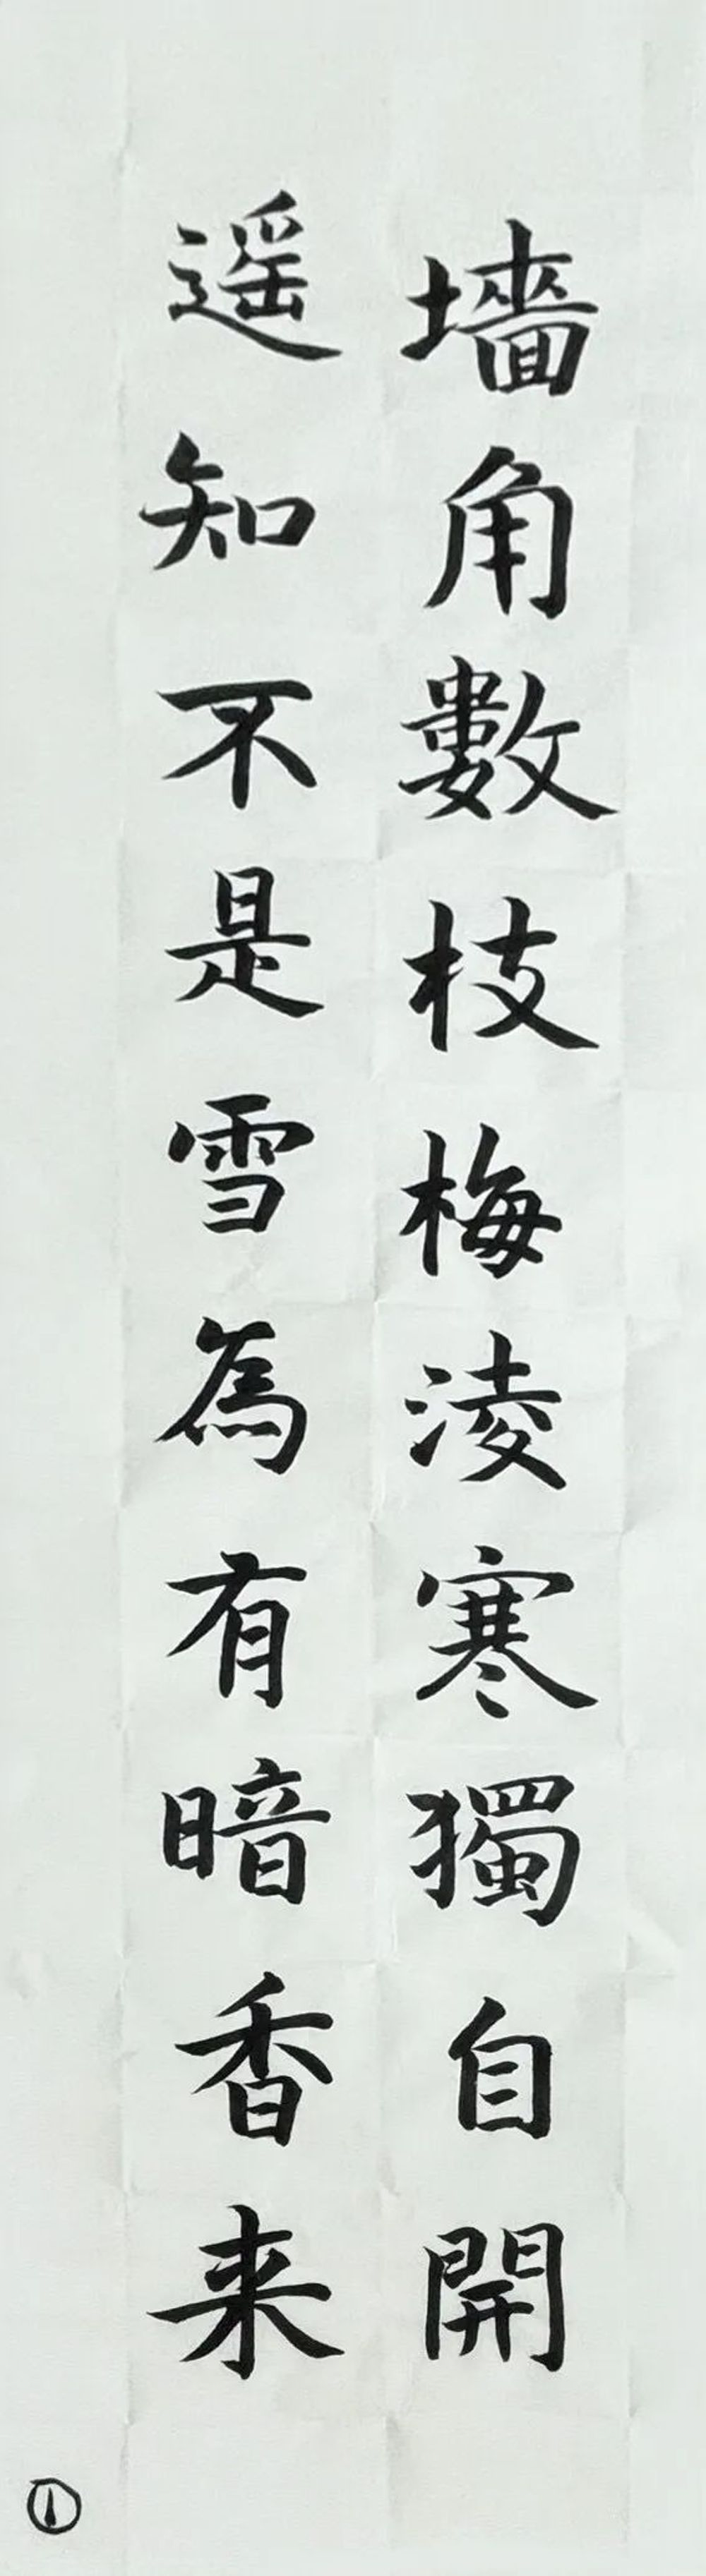 墻角數枝梅淩寒獨自開
遥知不是雪為有暗香来
①